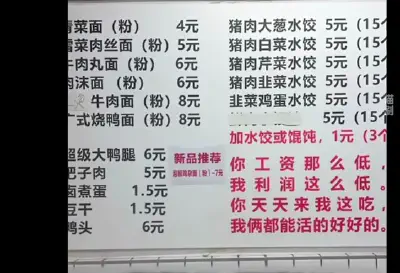 青菜面（粉） 4元
雪菜肉丝面（粉）5元
牛肉丸面（粉）6元
肉沫面（粉）6元
牛肉面（粉）8元
广式烧鸭面（粉）8元
超级大鸭腿 6元
把子肉 5元
卤煮蛋 1.5元
豆干 1.5元
鸭头 6元
新品推荐
（粉）-7元
猪肉大葱水饺 5元（15个
猪肉白菜水饺 5元（15个
猪肉芹菜水饺 5元（15个
猪肉韭菜水饺 5元（15个
韭菜鸡蛋水饺 5元（15个
5元（15个
加水饺或馄饨，1元（3个
你工资那么低，
我利润这么低。
你天天来我这吃，
我俩都能活的好好的。